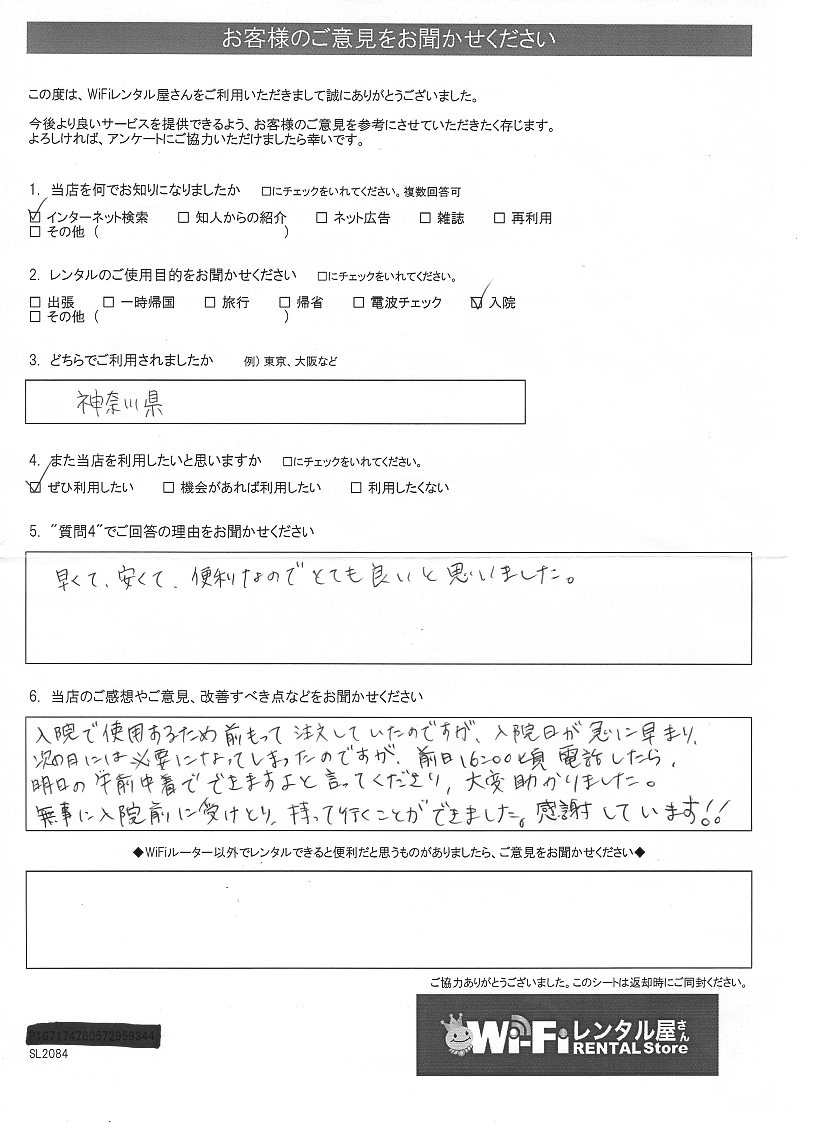 お客様のご意見をお聞かせください
この度は、WiFiレンタル屋さんをご利用いただきまして誠にありがとうございました。
今後より良いサービスを提供できるよう、お客様のご意見を参考にさせていただきたく存じます。
よろしければ、アンケートにご協力いただけましたら幸いです。
1. 当店を何でお知りになりましたか □にチェックをいれてください。複数回答可
☑ インターネット検索 □ 知人からの紹介 □ ネット広告 □ 雑誌 □ 再利用
□ その他 ( )
2. レンタルのご使用目的をお聞かせください □にチェックをいれてください。
□ 出張 □ 一時帰国 □ 旅行 □ 帰省 □ 電波チェック ☑ 入院
□ その他 ( )
3. どちらでご利用されましたか 例) 東京、大阪など
神奈川県
4. また当店を利用したいと思いますか □にチェックをいれてください。
☑ ぜひ利用したい □ 機会があれば利用したい □ 利用したくない
5. "質問4"でご回答の理由をお聞かせください
早くて、安くて、便利なのでとても良いと思いました。
6. 当店のご感想やご意見、改善すべき点などをお聞かせください
入院で使用するため前もって注文していたのですが、入院日が急に早まり、
次の日には必要になってしまったのですが、前日16:00頃電話したら、
明日の午前中着でできますよと言ってくださり、大変助かりました。
無事に入院前に受けとり、持って行くことができました。感謝しています!!
◆WiFiルーター以外でレンタルできると便利だと思うものがありましたら、ご意見をお聞かせください◆
ご協力ありがとうございました。このシートは返却時にご同封ください。
Wi-Fiレンタル屋さん
RENTAL Store
SL2084